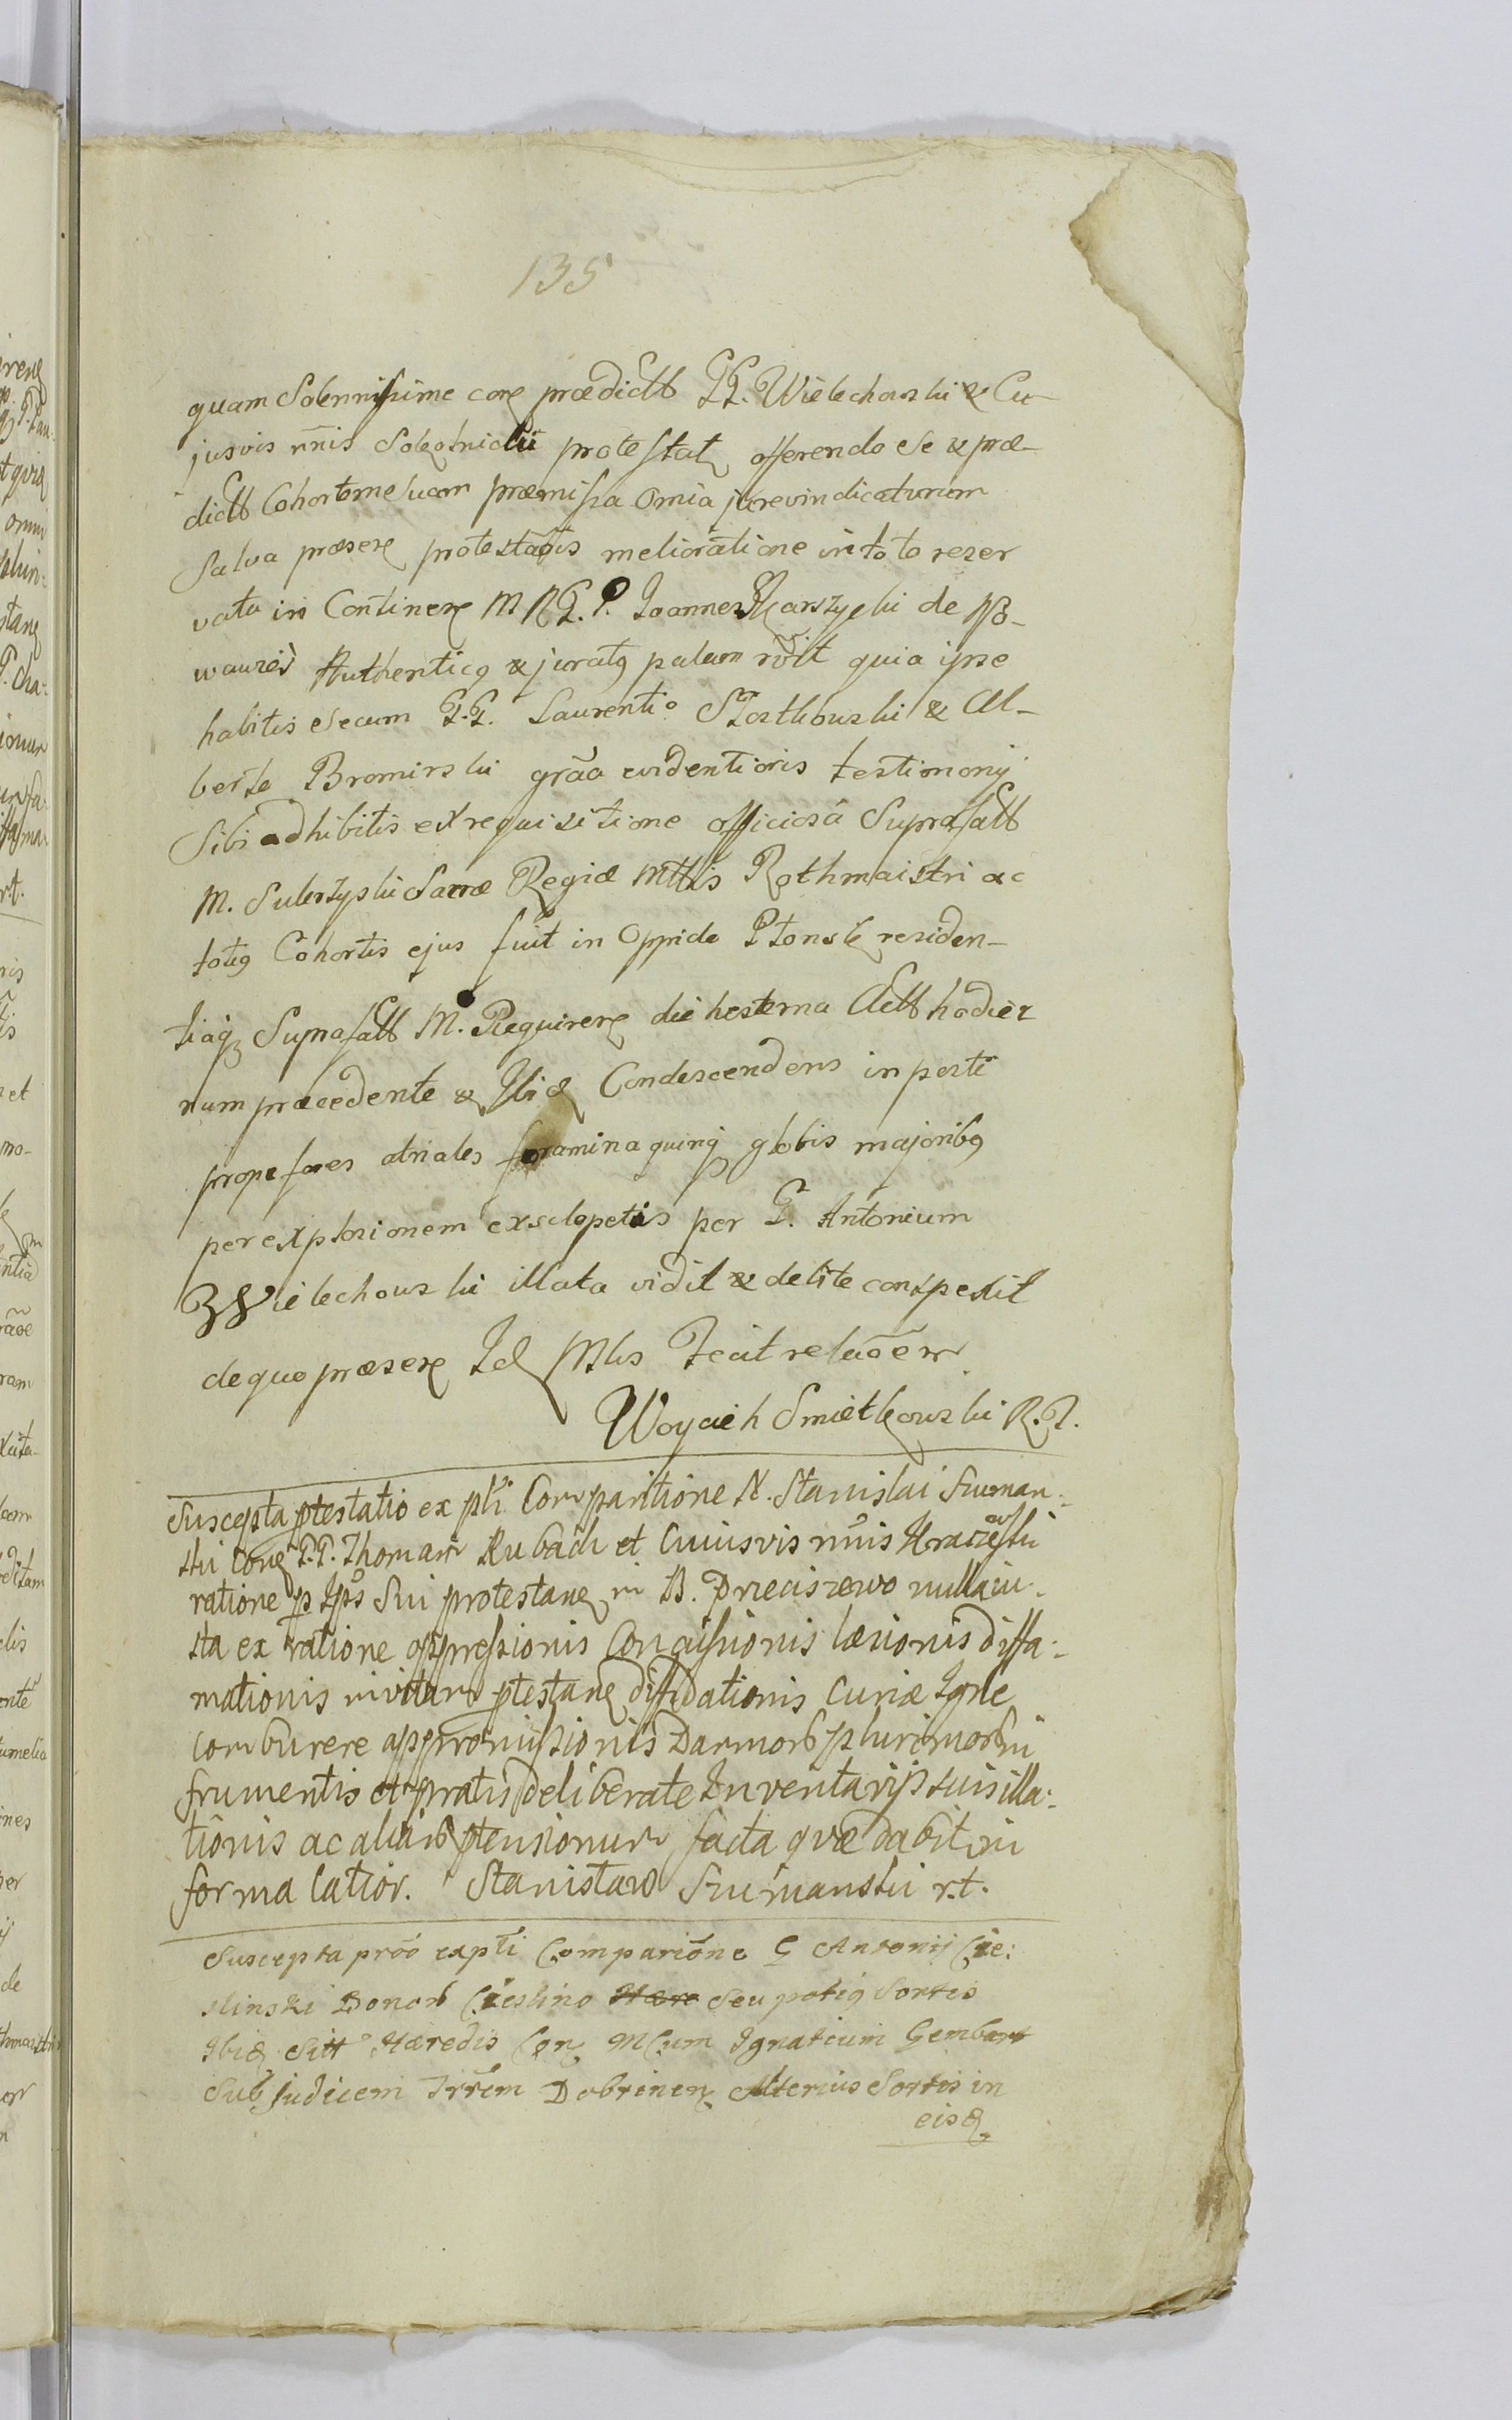 135
quam Solennissime con prædictt GG. Wielechowski & Cu-
jusvis nn̄is protestat offerendo se & præ-
dictt Cohortem suam præmissa omia jure vindicaturum
Salva præsen protestāōis melioratione in toto reser
vata in Continen M R G. P. Joannes Karszycki de
Authenticq & juratq palam quia ipse
habitis secum G.G. Laurentio & Al-
berto Bromirski grāa evidentioris testimonij
Sibi adhibitis ex requisitione officiosa Suprafatt
M. Sacræ Regiæ Mttis Rothmaistri ac
totiq Cohortis ejus fuit in Oppido Płonsk residen-
tiaqz Suprafatt M. Requiren die hesterna Actt hodier
num præcedente & Ibid Condescendens in poste
prope fores atriales foramina quinq globis majoribq
per explosionem ex sclopetis per G. Antonium
Wielechowski illata vidit & debite conspexit
de quo præsen Id Mlis Fecit relāōem
Woyciech Smietkowski R.T.
Suscepta ptestatio ex pti Comparitione N. Stanislai Szuman-
ski Con P.P. Thomam Rubach et Cuiusvis nn̄is
ratione p Ips Sui protestan in B. Przeciszewo nulla iu-
sta ex ratione oppressionis Concissionis læsionis diffa-
mationis ptestan diffidationis Curiæ Igne
comburere appromissionis Damnorb plurimorb in
frumentis et pratis deliberate Inventarijs suis illa-
tionis ac aliarb ptensionum facta qvæ dabit in
forma latior. Stanisław Szumanski r.t.
Suscepta prōō ex pti Comparione G Antonij Cie:
slinski Bonorb Cieslino Hære seu potiq Sortis
Ibid Sitt Hæredis Con MCum Ignatium Gembart
Sub Judicem Trrēm Dobrinen Alterius Sortis in
eisd